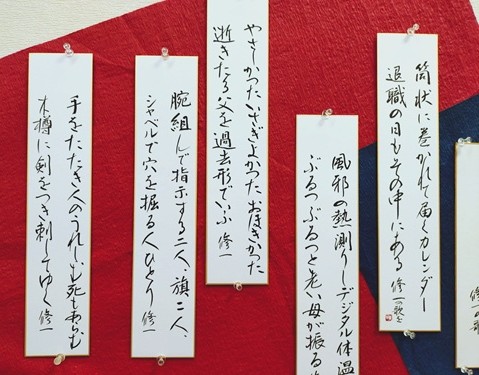 筒状に巻かれて届くカレンダー
退職の日もその中にある 修一の歌を
風邪の熱測りしデジタル体温
ぶるつぶるつと老い母が振る
やさしかつたいさぎよかつたおほきかつた
逝きたる父を過去形でいふ 修一
腕組んで指示する二人、旗二人、
シャベルで穴を掘る人ひとり 修一
手をたたき人のうれしむ死もあらむ
木樽に剣をつき刺してゆく 修一